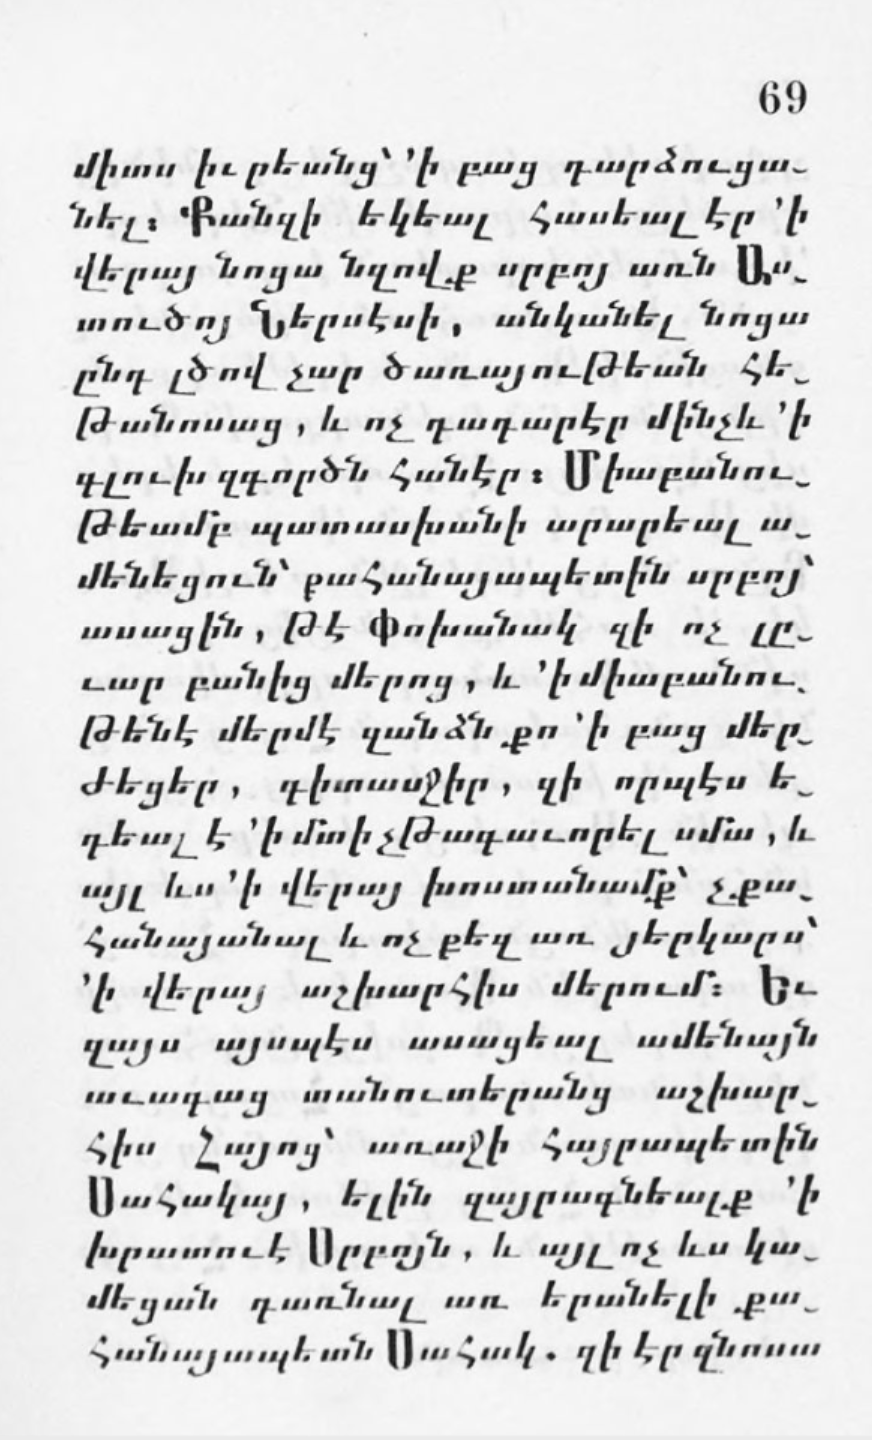 69
միտս իւրեանց՝ ՚ի բաց դարձուցա֊
նել։ Քանզի եկեալ հասեալ էր ՚ի
վերայ նոցա նզովք սրբոյ առն Աս֊
տուծոյ Ներսէսի, անկանել նոցա
ընդ լծով չար ծառայութեան հե֊
թանոսաց, և ոչ դադարէր մինչև ՚ի
գլուխ զգործն հանէր։ Միաբանու֊
թեամբ պատասխանի արարեալ ա֊
մենեցուն՝ քահանայապետին սրբոյ՝
ասացին, թէ Փոխանակ զի ոչ լը֊
ւար բանից մերոց, և ՚ի միաբանու֊
թենէ մերմէ զանձն քո ՚ի բաց մեր֊
ժեցեր, գիտասջիր, զի որպէս ե֊
դեալ է ՚ի մտի չթագաւորել սմա, և
այլ ևս ՚ի վերայ խոստանամք՝ չքա֊
հանայանալ և ոչ քեզ առ յերկարս՝
՚ի վերայ աշխարհիս մերում։ Եւ
զայս այսպէս ասացեալ ամենայն
աւագաց տանուտերանց աշխար֊
հիս Հայոց՝ առաջի հայրապետին
Սահակայ, ելին զայրագնեալք ՚ի
խրատուէ Սրբոյն, և այլ ոչ ևս կա֊
մեցան դառնալ առ երանելի քա֊
հանայապետն Սահակ. զի էր զնոսա